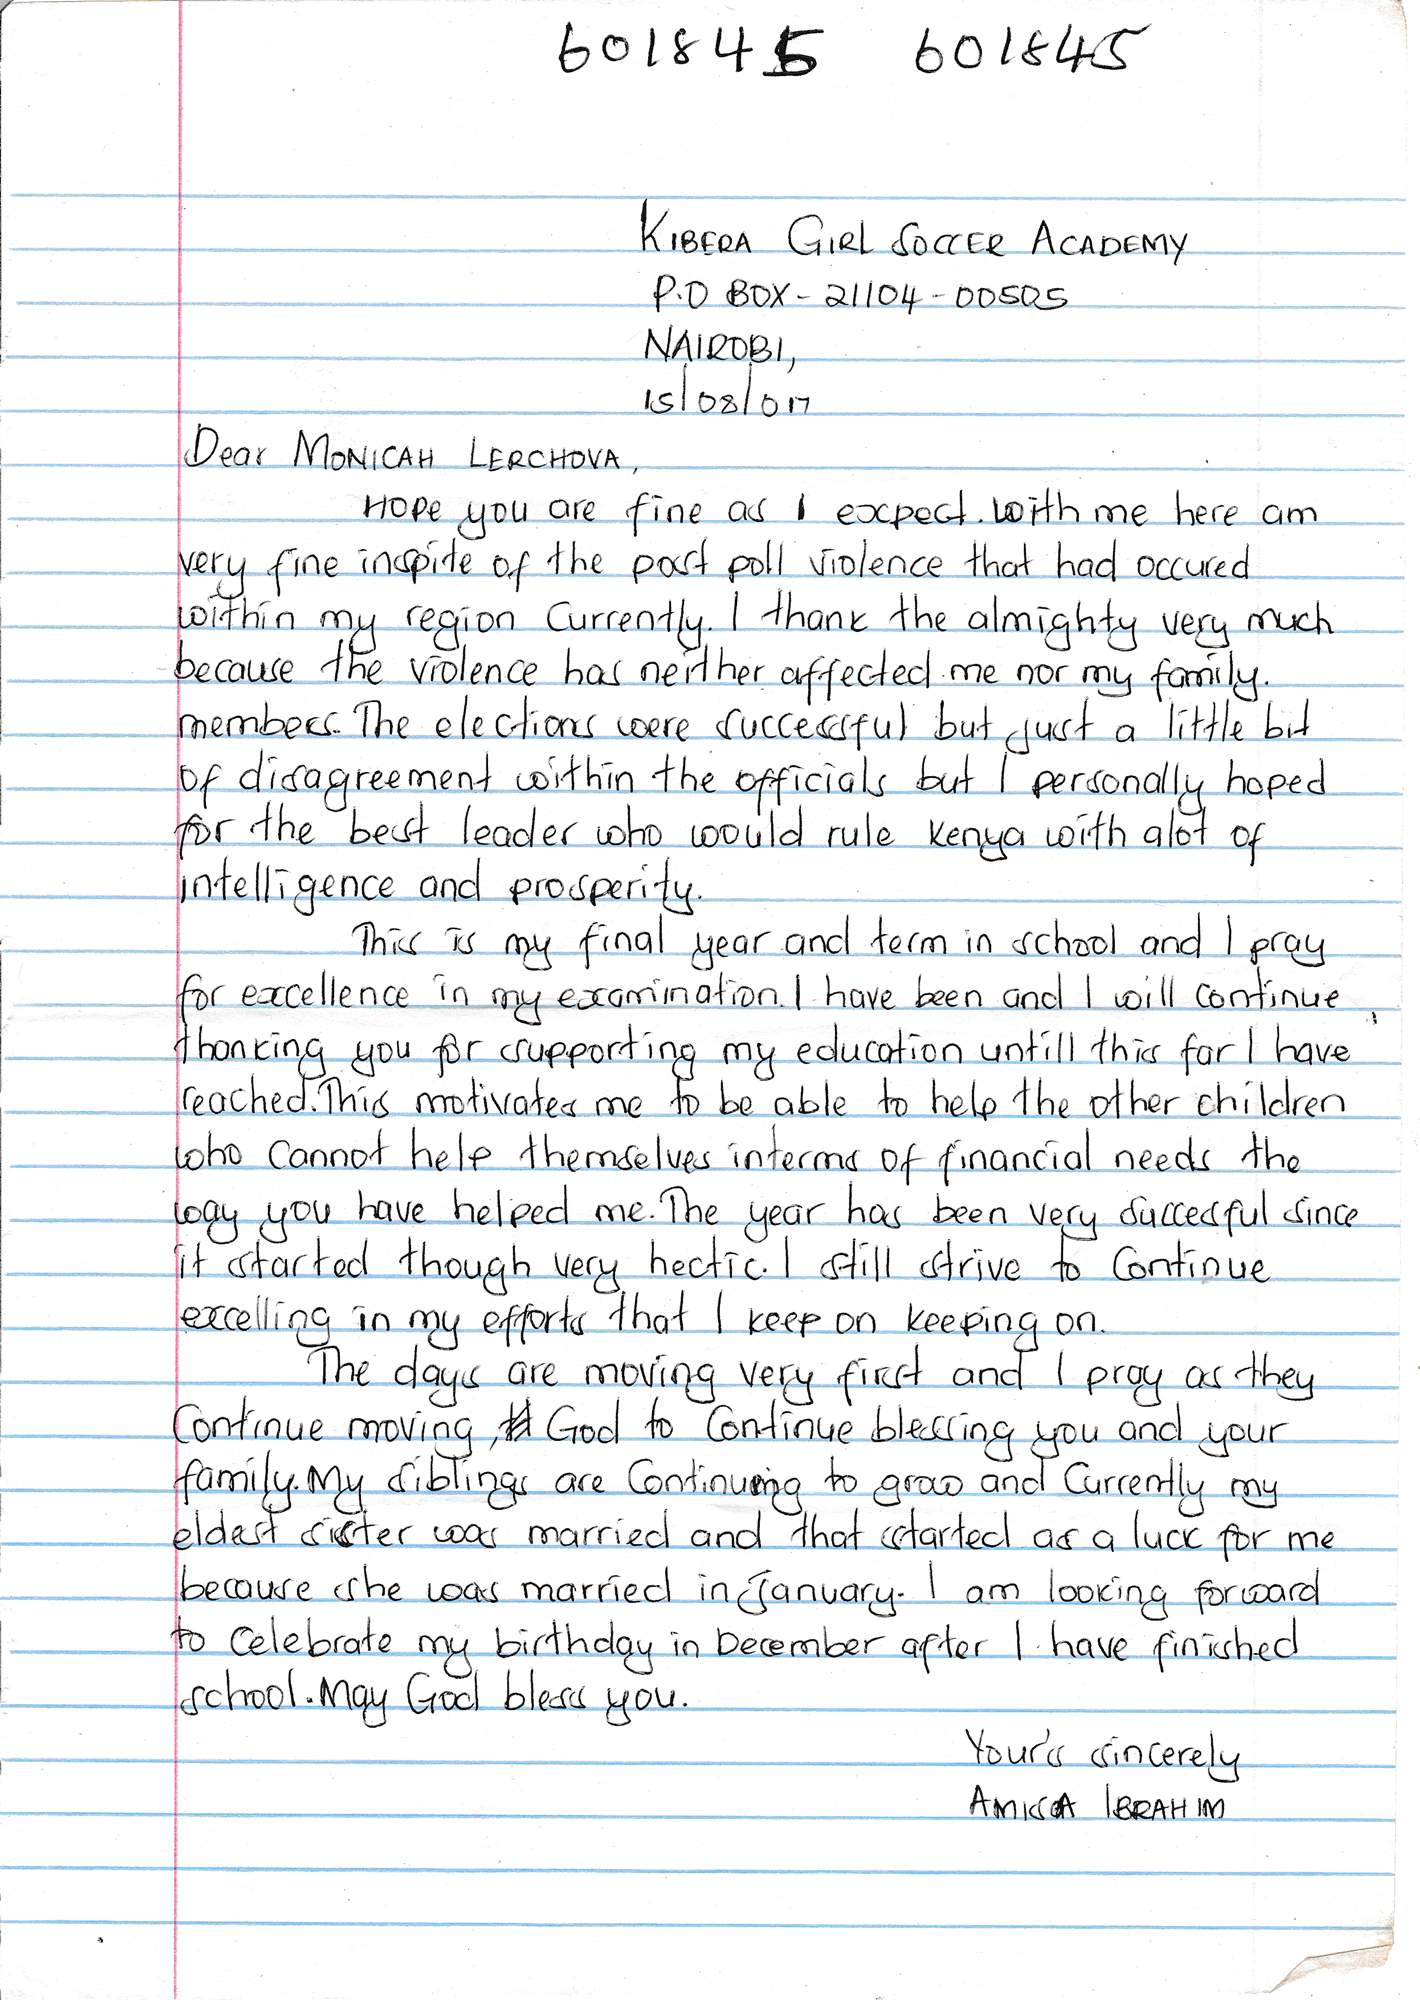 601845 601845
KIBERA GIRL SOCCER ACADEMY
P.O BOX - 21104 - 00505
NAIROBI,
15/08/017
Dear MONICAH LERCHOVA,
HOPE you are fine as I excpect. With me here am
very fine inspite of the past poll violence that had occured
within my region currently. I thank the almighty very much
because the violence has neither affected me nor my family.
members. The elections were successful but just a little bit
of disagreement within the officials but I personally hoped
for the best leader who would rule kenya with alot of
intelligence and prosperity.
This is my final year and term in school and I pray
for excellence in my examination. I have been and I will continue
thanking you for supporting my education untill this far I have
reached. This motivates me to be able to help the other children
who cannot help themselves interms of financial needs the
way you have helped me. The year has been very succesful since
it started though very hectic. I still strive to continue
excelling in my efforts that I keep on keeping on.
The days are moving very first and I pray as they
continue moving, God to continue blessing you and your
family. My siblings are continuing to grow and currently my
eldest sister was married and that started as a luck for me
because she was married in January. I am looking forward
to celebrate my birthday in December after I have finished
school. May God bless you.
Your's sincerely
AMISA IBRAHIM